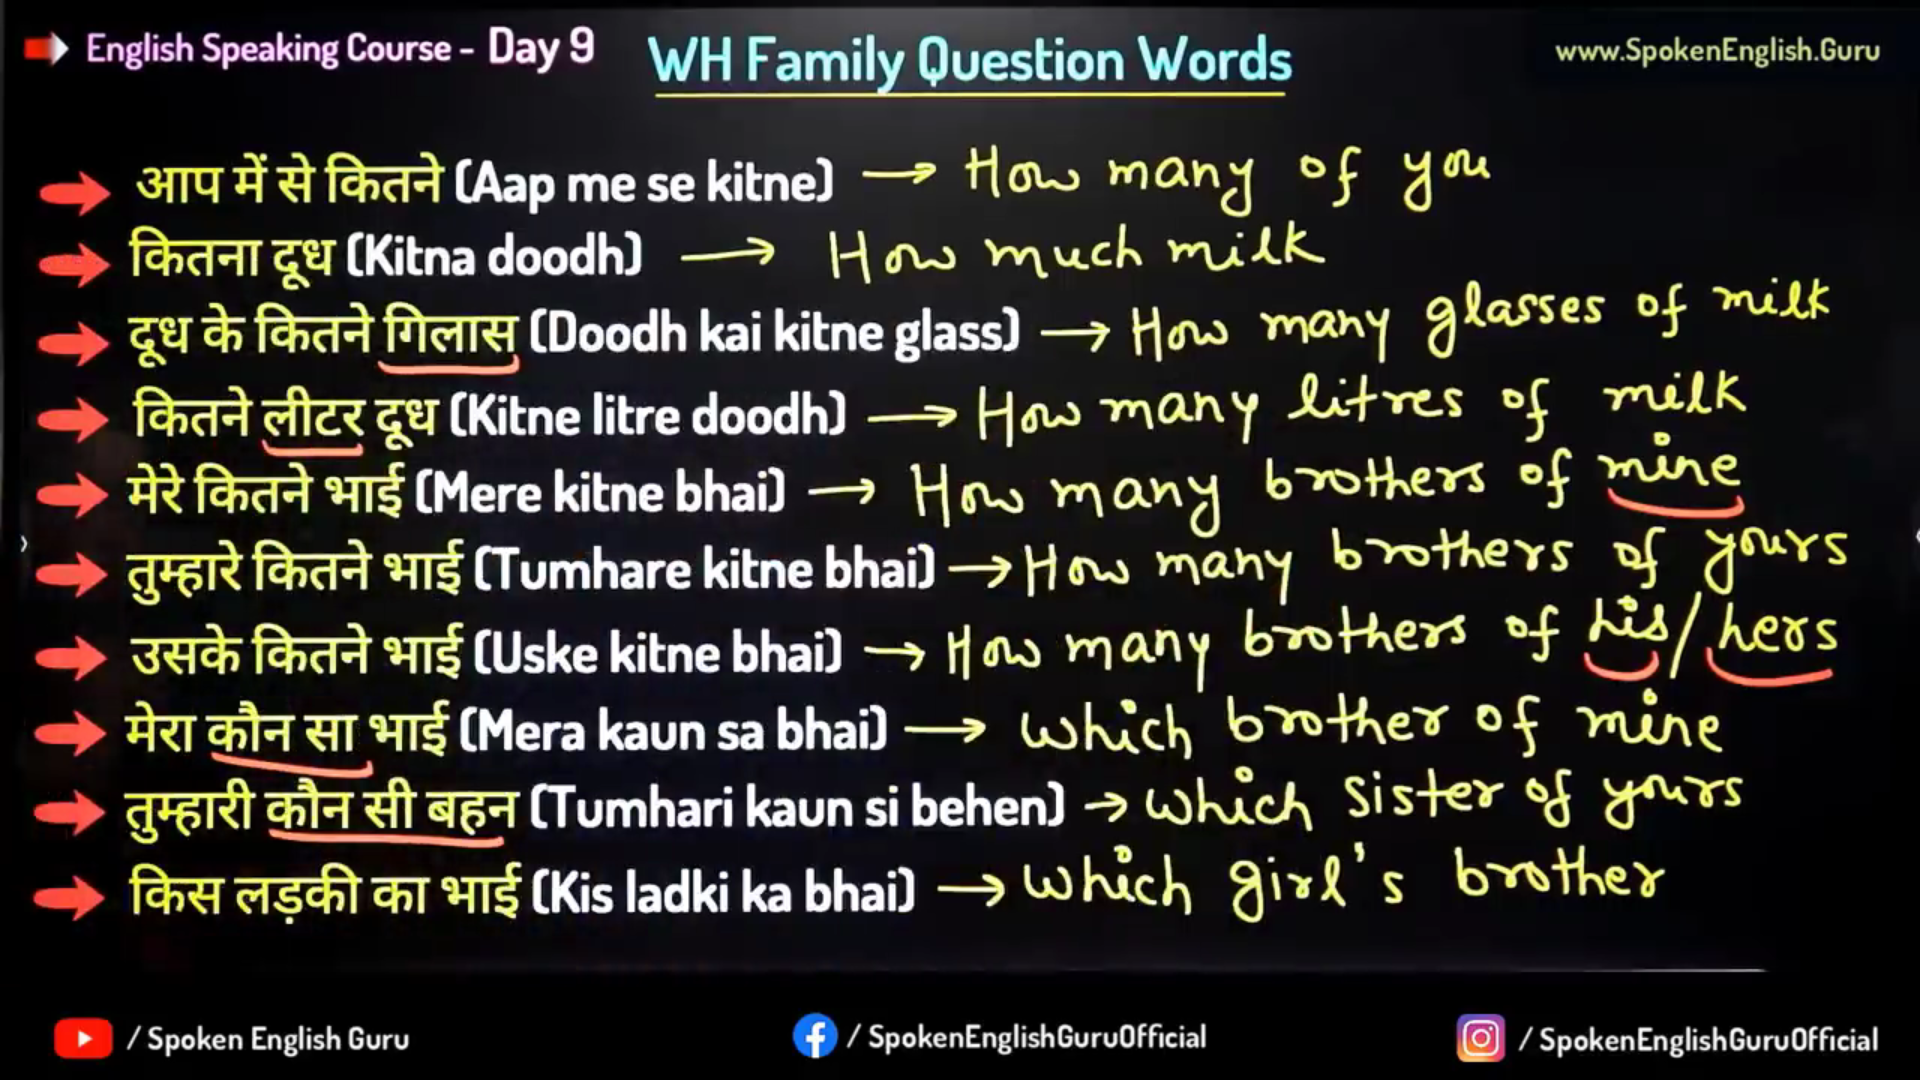 English Speaking Course - Day 9
WH Family Question Words
www.SpokenEnglish.Guru
आप में से कितने (Aap me se kitne) → How many of you
कितना दूध (Kitna doodh) → How much milk
दूध के कितने गिलास (Doodh kai kitne glass) → How many glasses of milk
कितने लीटर दूध (Kitne litre doodh) → How many litres of milk
मेरे कितने भाई (Mere kitne bhai) → How many brothers of mine
तुम्हारे कितने भाई (Tumhare kitne bhai) → How many brothers of yours
उसके कितने भाई (Uske kitne bhai) → How many brothers of his/hers
मेरा कौन सा भाई (Mera kaun sa bhai) → which brother of mine
तुम्हारी कौन सी बहन (Tumhari kaun si behen) → which sister of yours
किस लड़की का भाई (Kis ladki ka bhai) → which girl's brother
/ Spoken English Guru
/ SpokenEnglishGuruOfficial
/ SpokenEnglishGuruOfficial